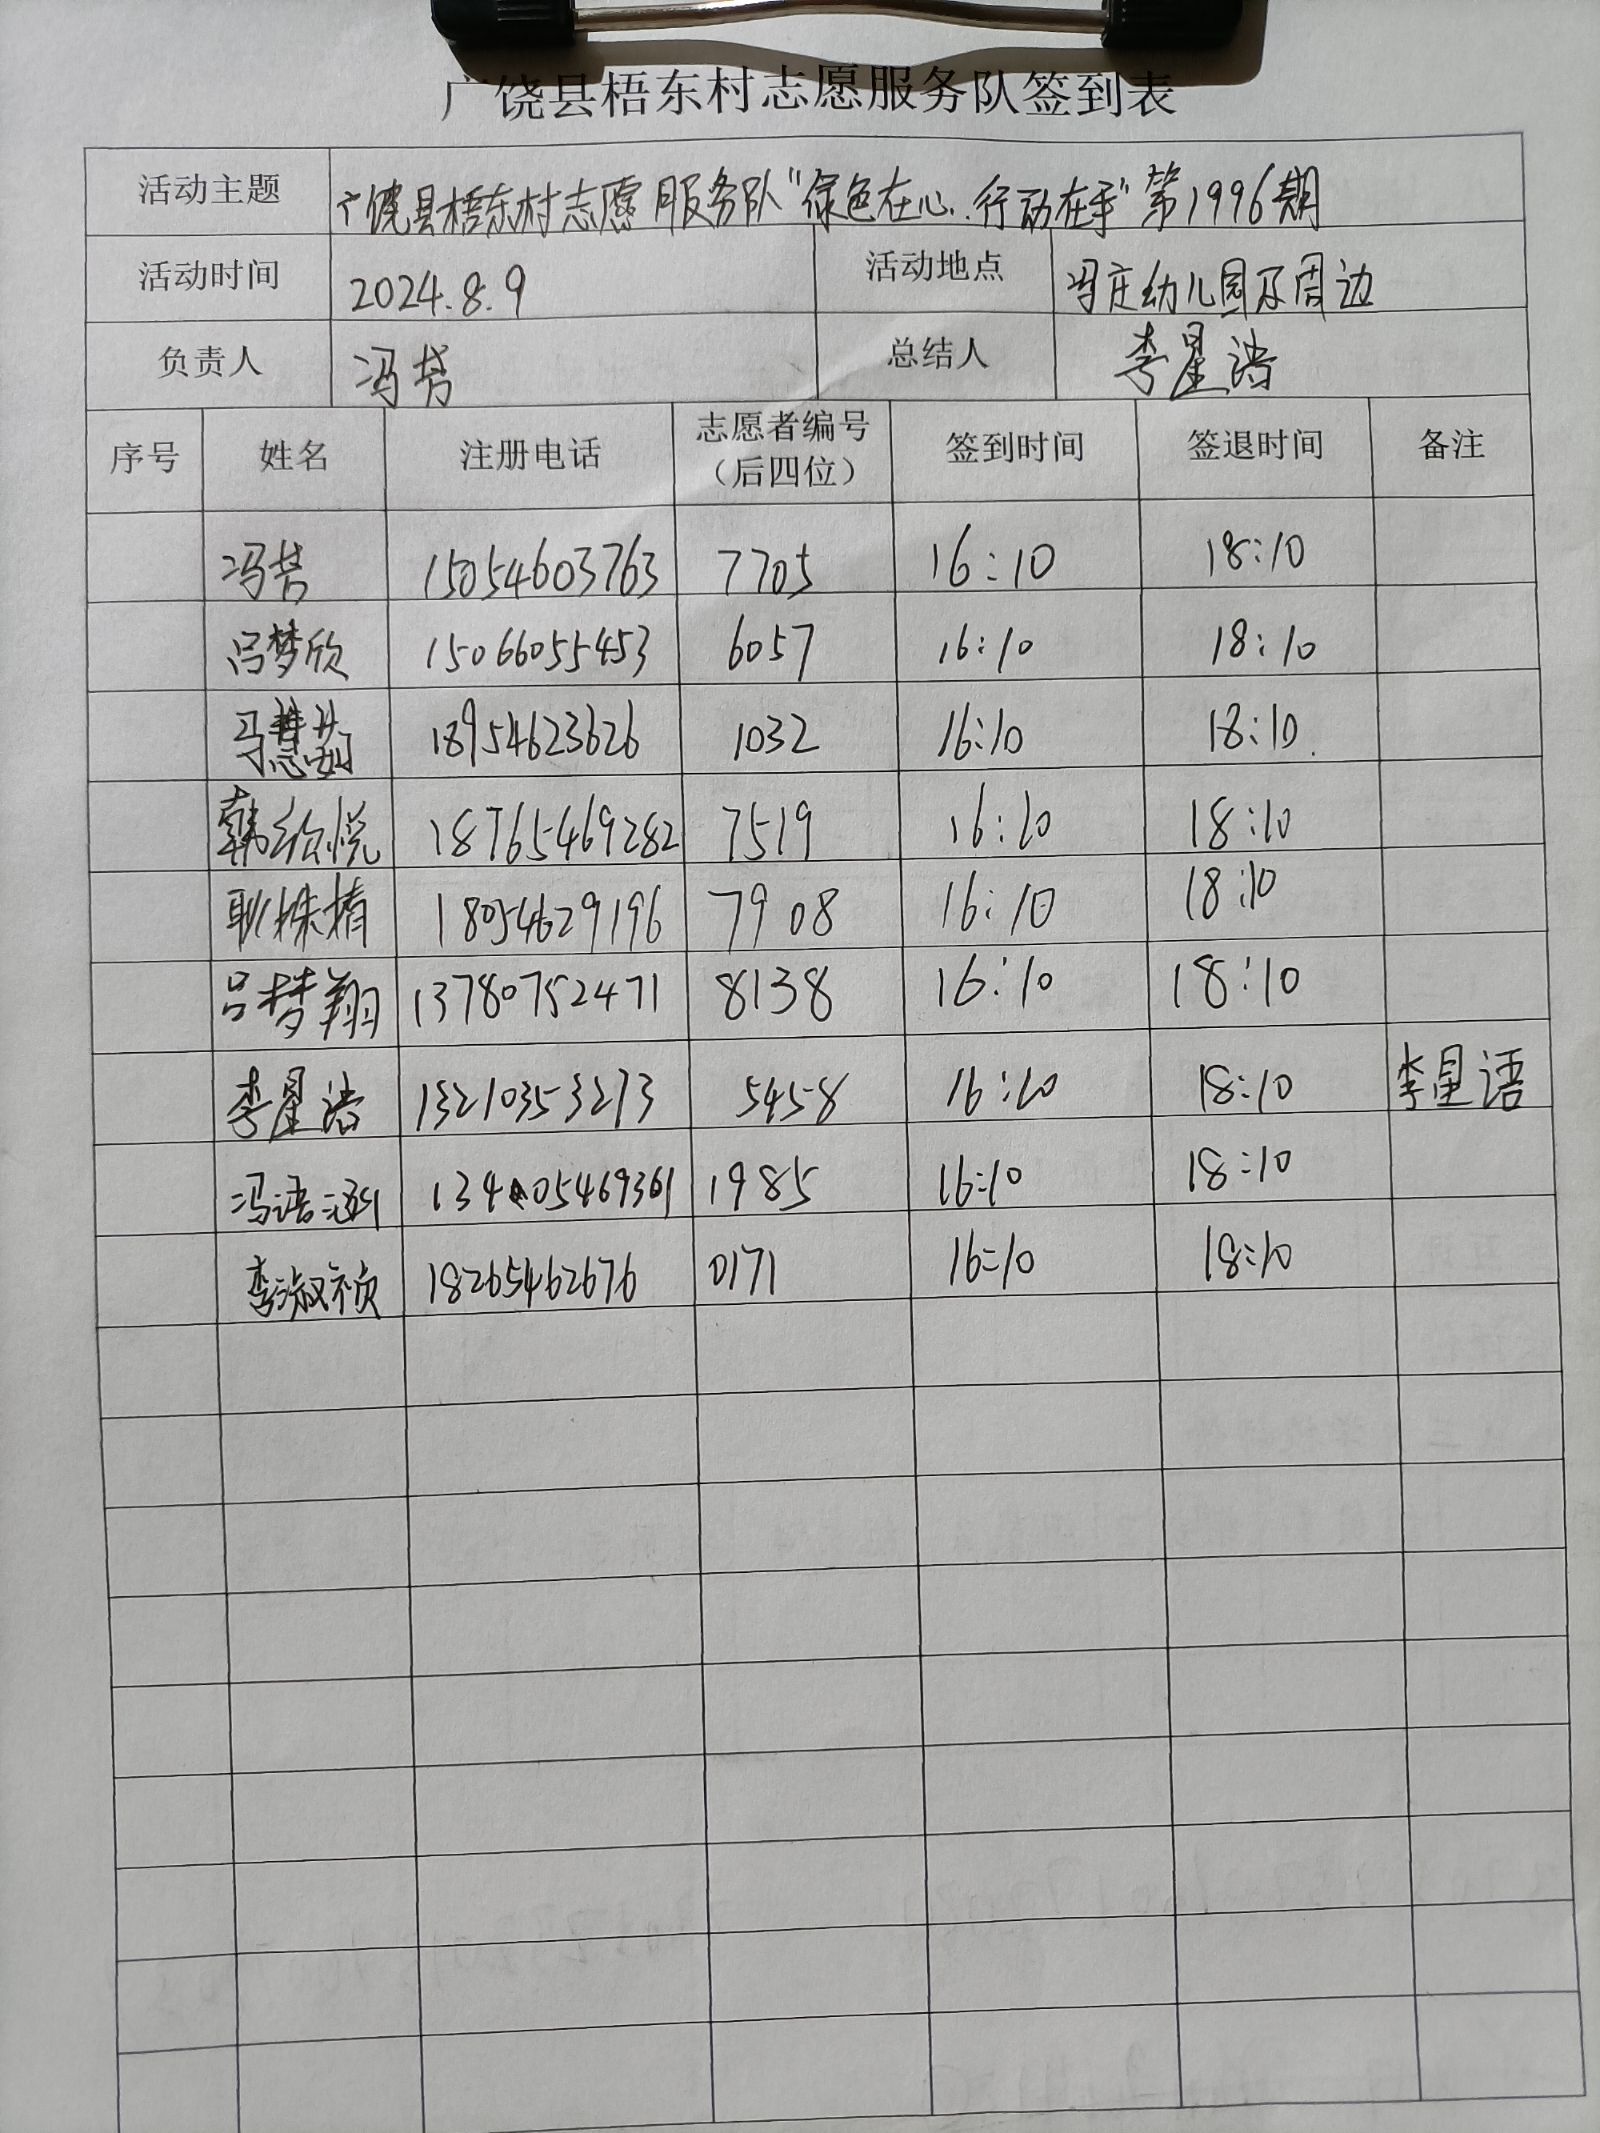 广饶县梧东村志愿服务队签到表
活动主题 广饶县梧东村志愿服务队“绿色在心.行动在手”第1996期
活动时间 2024.8.9 活动地点 冯庄幼儿园及周边
负责人 冯芳 总结人 李星浩
序号 姓名 注册电话 志愿者编号（后四位） 签到时间 签退时间 备注
冯芳 15054603763 7705 16:10 18:10
吕梦欣 15066055453 6057 16:10 18:10
18954623626 1032 16:10 18:10
18765469282 7519 16:10 18:10
18054629196 7908 16:10 18:10
吕梦翔 13780752471 8138 16:10 18:10
李星浩 13210353273 5458 16:10 18:10 李星语
冯语涵 13405469361 1985 16:10 18:10
李淑祯 18265462676 0171 16:10 18:10